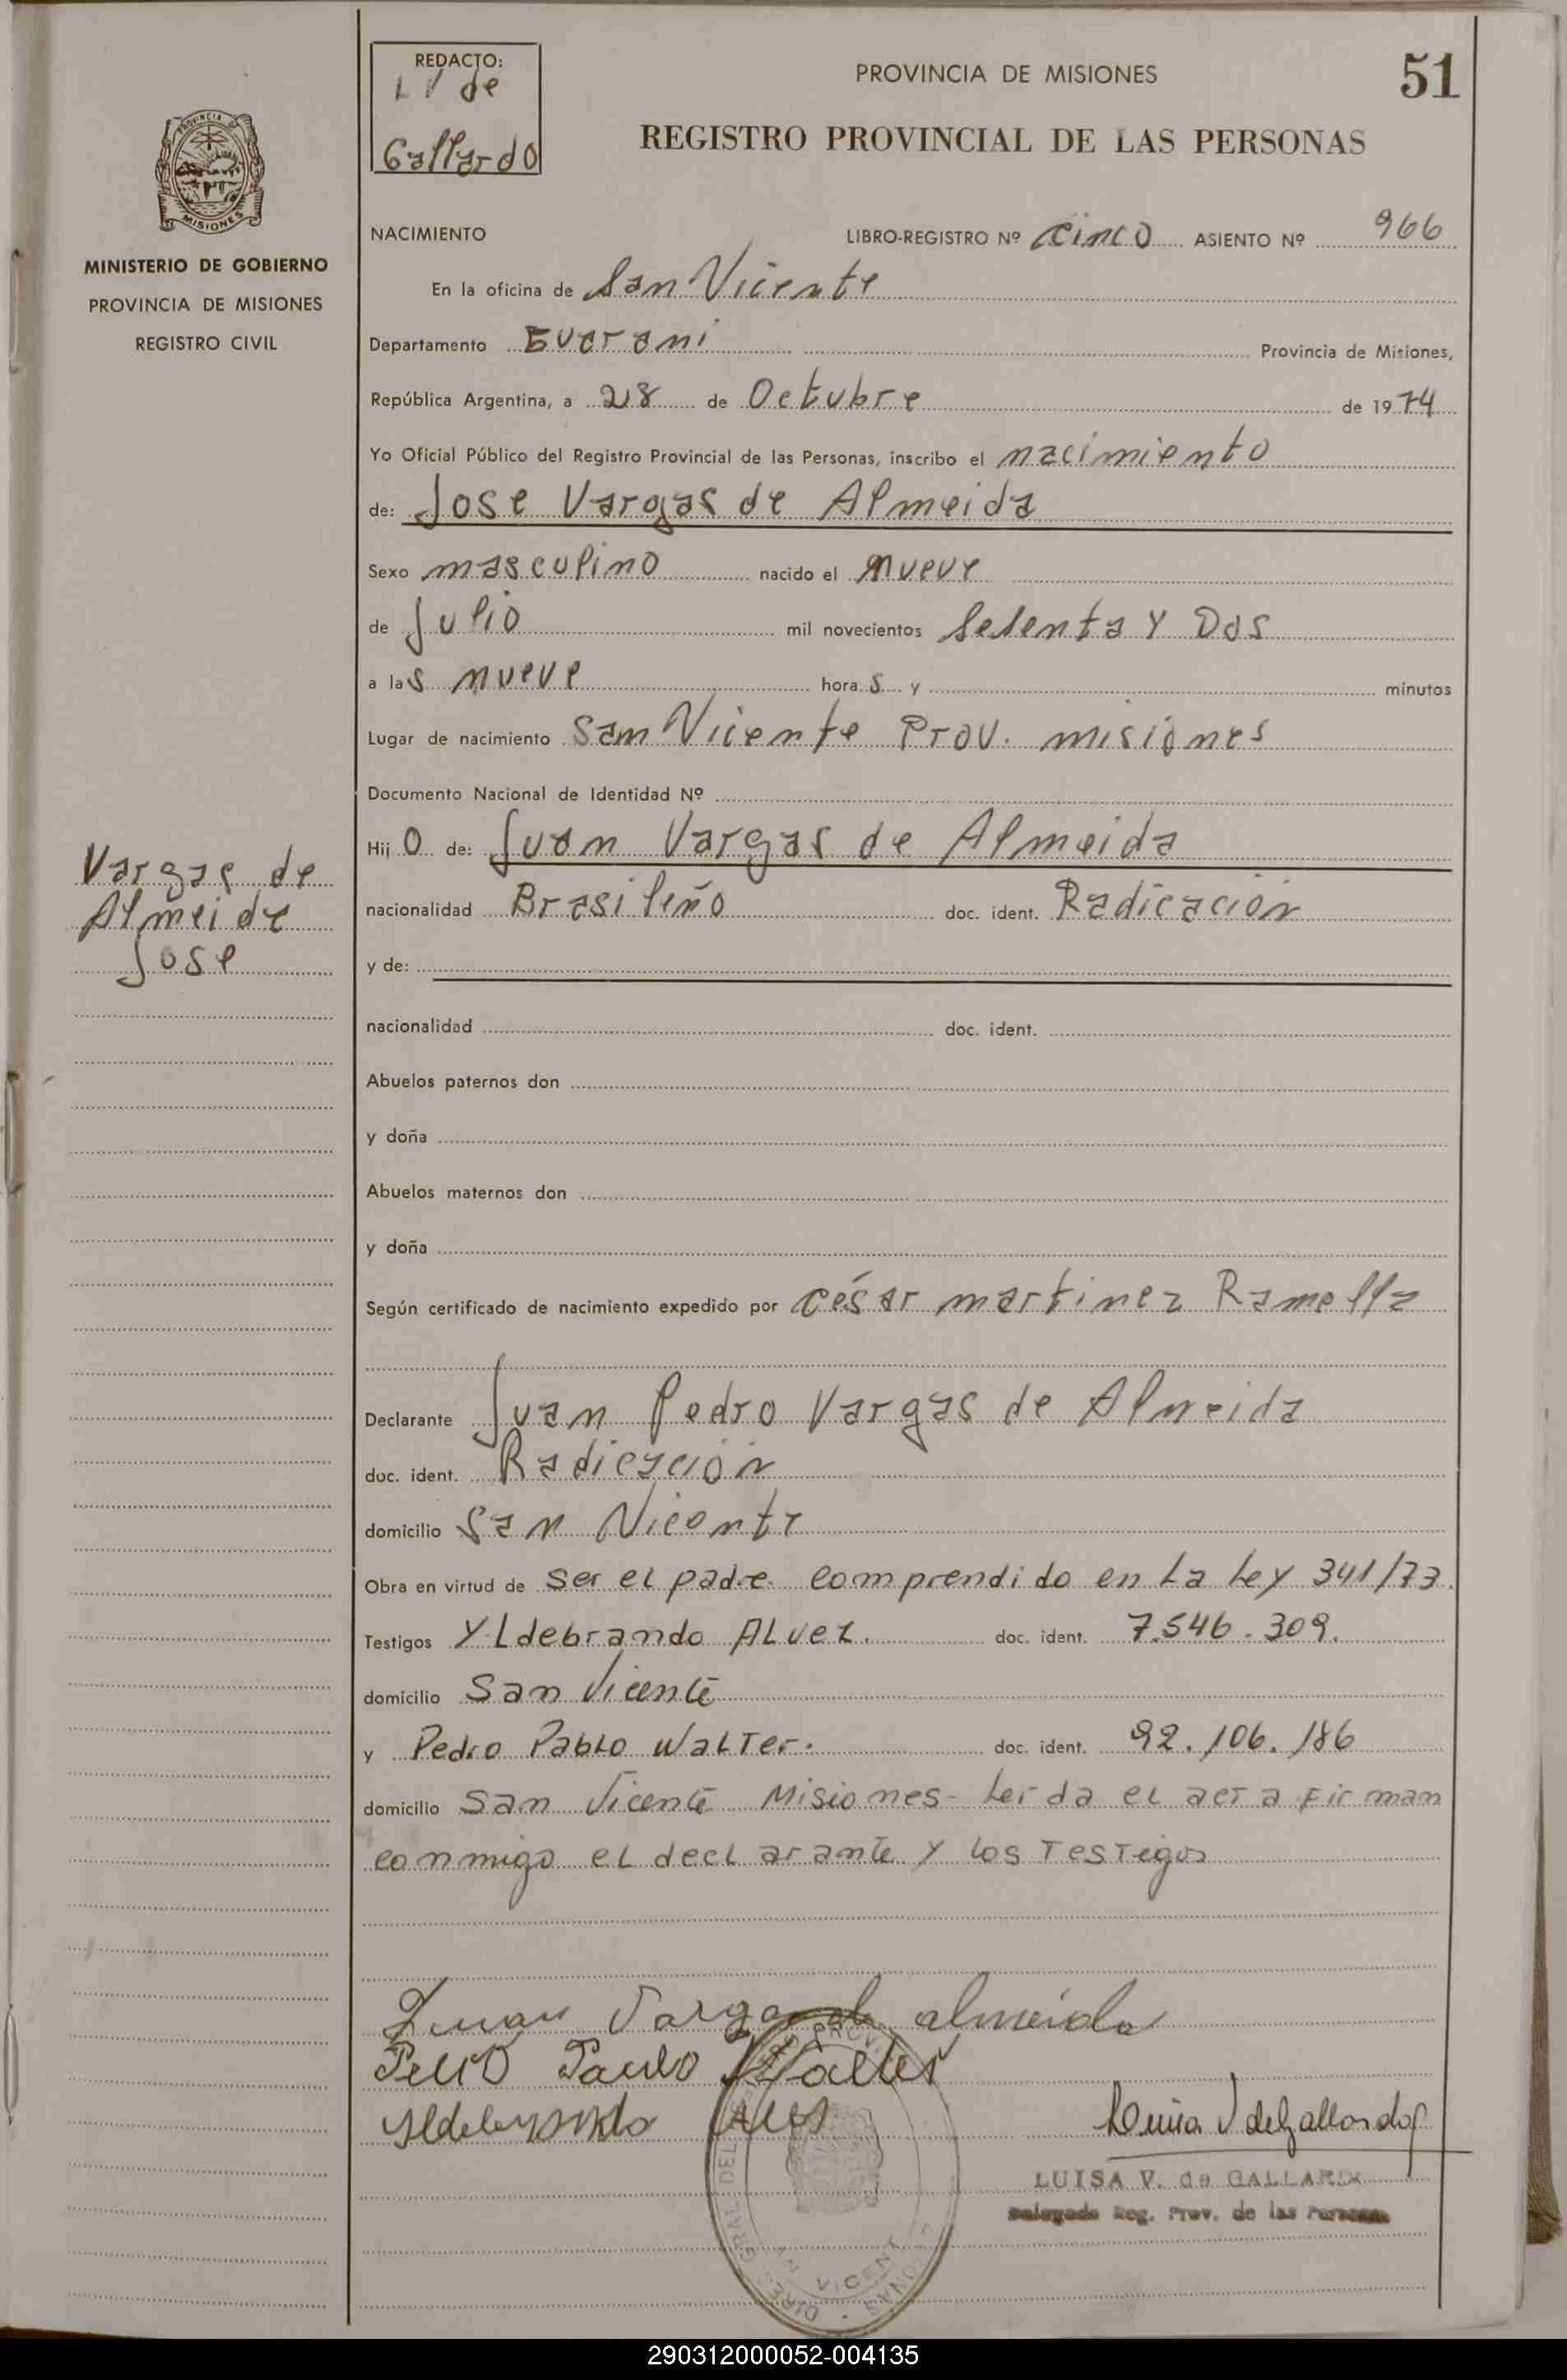 REDACTO:
L V de
Gallardo
PROVINCIA DE MISIONES
51
REGISTRO PROVINCIAL DE LAS PERSONAS
PROVINCIA DE
MISIONES
MINISTERIO DE GOBIERNO
PROVINCIA DE MISIONES
REGISTRO CIVIL
NACIMIENTO
LIBRO-REGISTRO Nº cinco ASIENTO Nº 966
En la oficina de San Vicente
Departamento Guarani Provincia de Misiones,
República Argentina, a 28 de Octubre de 1974
Yo Oficial Público del Registro Provincial de las Personas, inscribo el nacimiento
de: Jose Vargas de Almeida
Sexo masculino nacido el nueve
de Julio mil novecientos Setenta y Dos
a las nueve horas y minutos
Lugar de nacimiento San Vicente Prov. misiones
Documento Nacional de Identidad Nº
Hijo de: Juan Vargas de Almeida
nacionalidad Brasileño doc. ident. Radicación
y de:
nacionalidad doc. ident.
Vargas de
Almeida
Jose
Abuelos paternos don
y doña
Abuelos maternos don
y doña
Según certificado de nacimiento expedido por césar martinez Ramella
Declarante Juan Pedro Vargas de Almeida
doc. ident. Radicación
domicilio San Vicente
Obra en virtud de ser el padre comprendido en la ley 341/73.
Testigos Yldebrando Alvez. doc. ident. 7.546.309.
domicilio San Vicente
y Pedro Pablo Walter. doc. ident. 92.106.186
domicilio San Vicente Misiones- Leida el acta Firman
conmigo el declarante y los Testigos
Juan Vargas de almeida
Pedro Paulo Walter
Luisa V de Gallardo
LUISA V. de GALLARDO
Delegada Reg. Prov. de las Personas
290312000052-004135